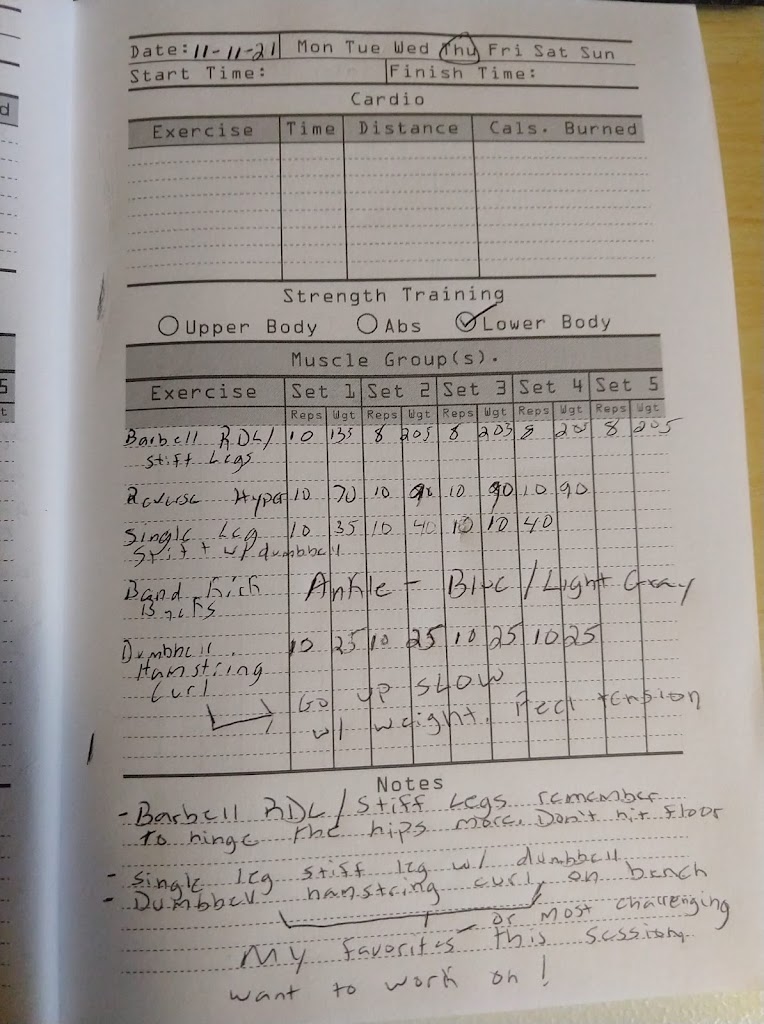 Date: 11-11-21 Mon Tue Wed Thu Fri Sat Sun
Start Time: Finish Time:
Cardio
Exercise Time Distance Cals. Burned
Strength Training
Upper Body Abs Lower Body
Muscle Group(s).
Exercise Set 1 Set 2 Set 3 Set 4 Set 5
Reps Wgt Reps Wgt Reps Wgt Reps Wgt Reps Wgt
Barbell RDL/ 10 135 8 205 8 205 8 205 8 205
Stiff Legs
Reverse Hyper 10 70 10 90 10 90 10 90
Single Leg 10 35 10 40 10 10 40
Stiff w/ dumbbell
Band Kick Ankle - Blue / Light Gray
Backs
Dumbbell 10 25 10 25 10 25 10 25
Hamstring
Curl
Go up slow
w/ weight. Feel tension
Notes
- Barbell RDL / Stiff Legs remember
to hinge the hips more. Don't hit floor
- Single leg stiff leg w/ dumbbell
- Dumbbell hamstring curl on bench
My favorites or most challenging
this session
want to work on!
d
5
t